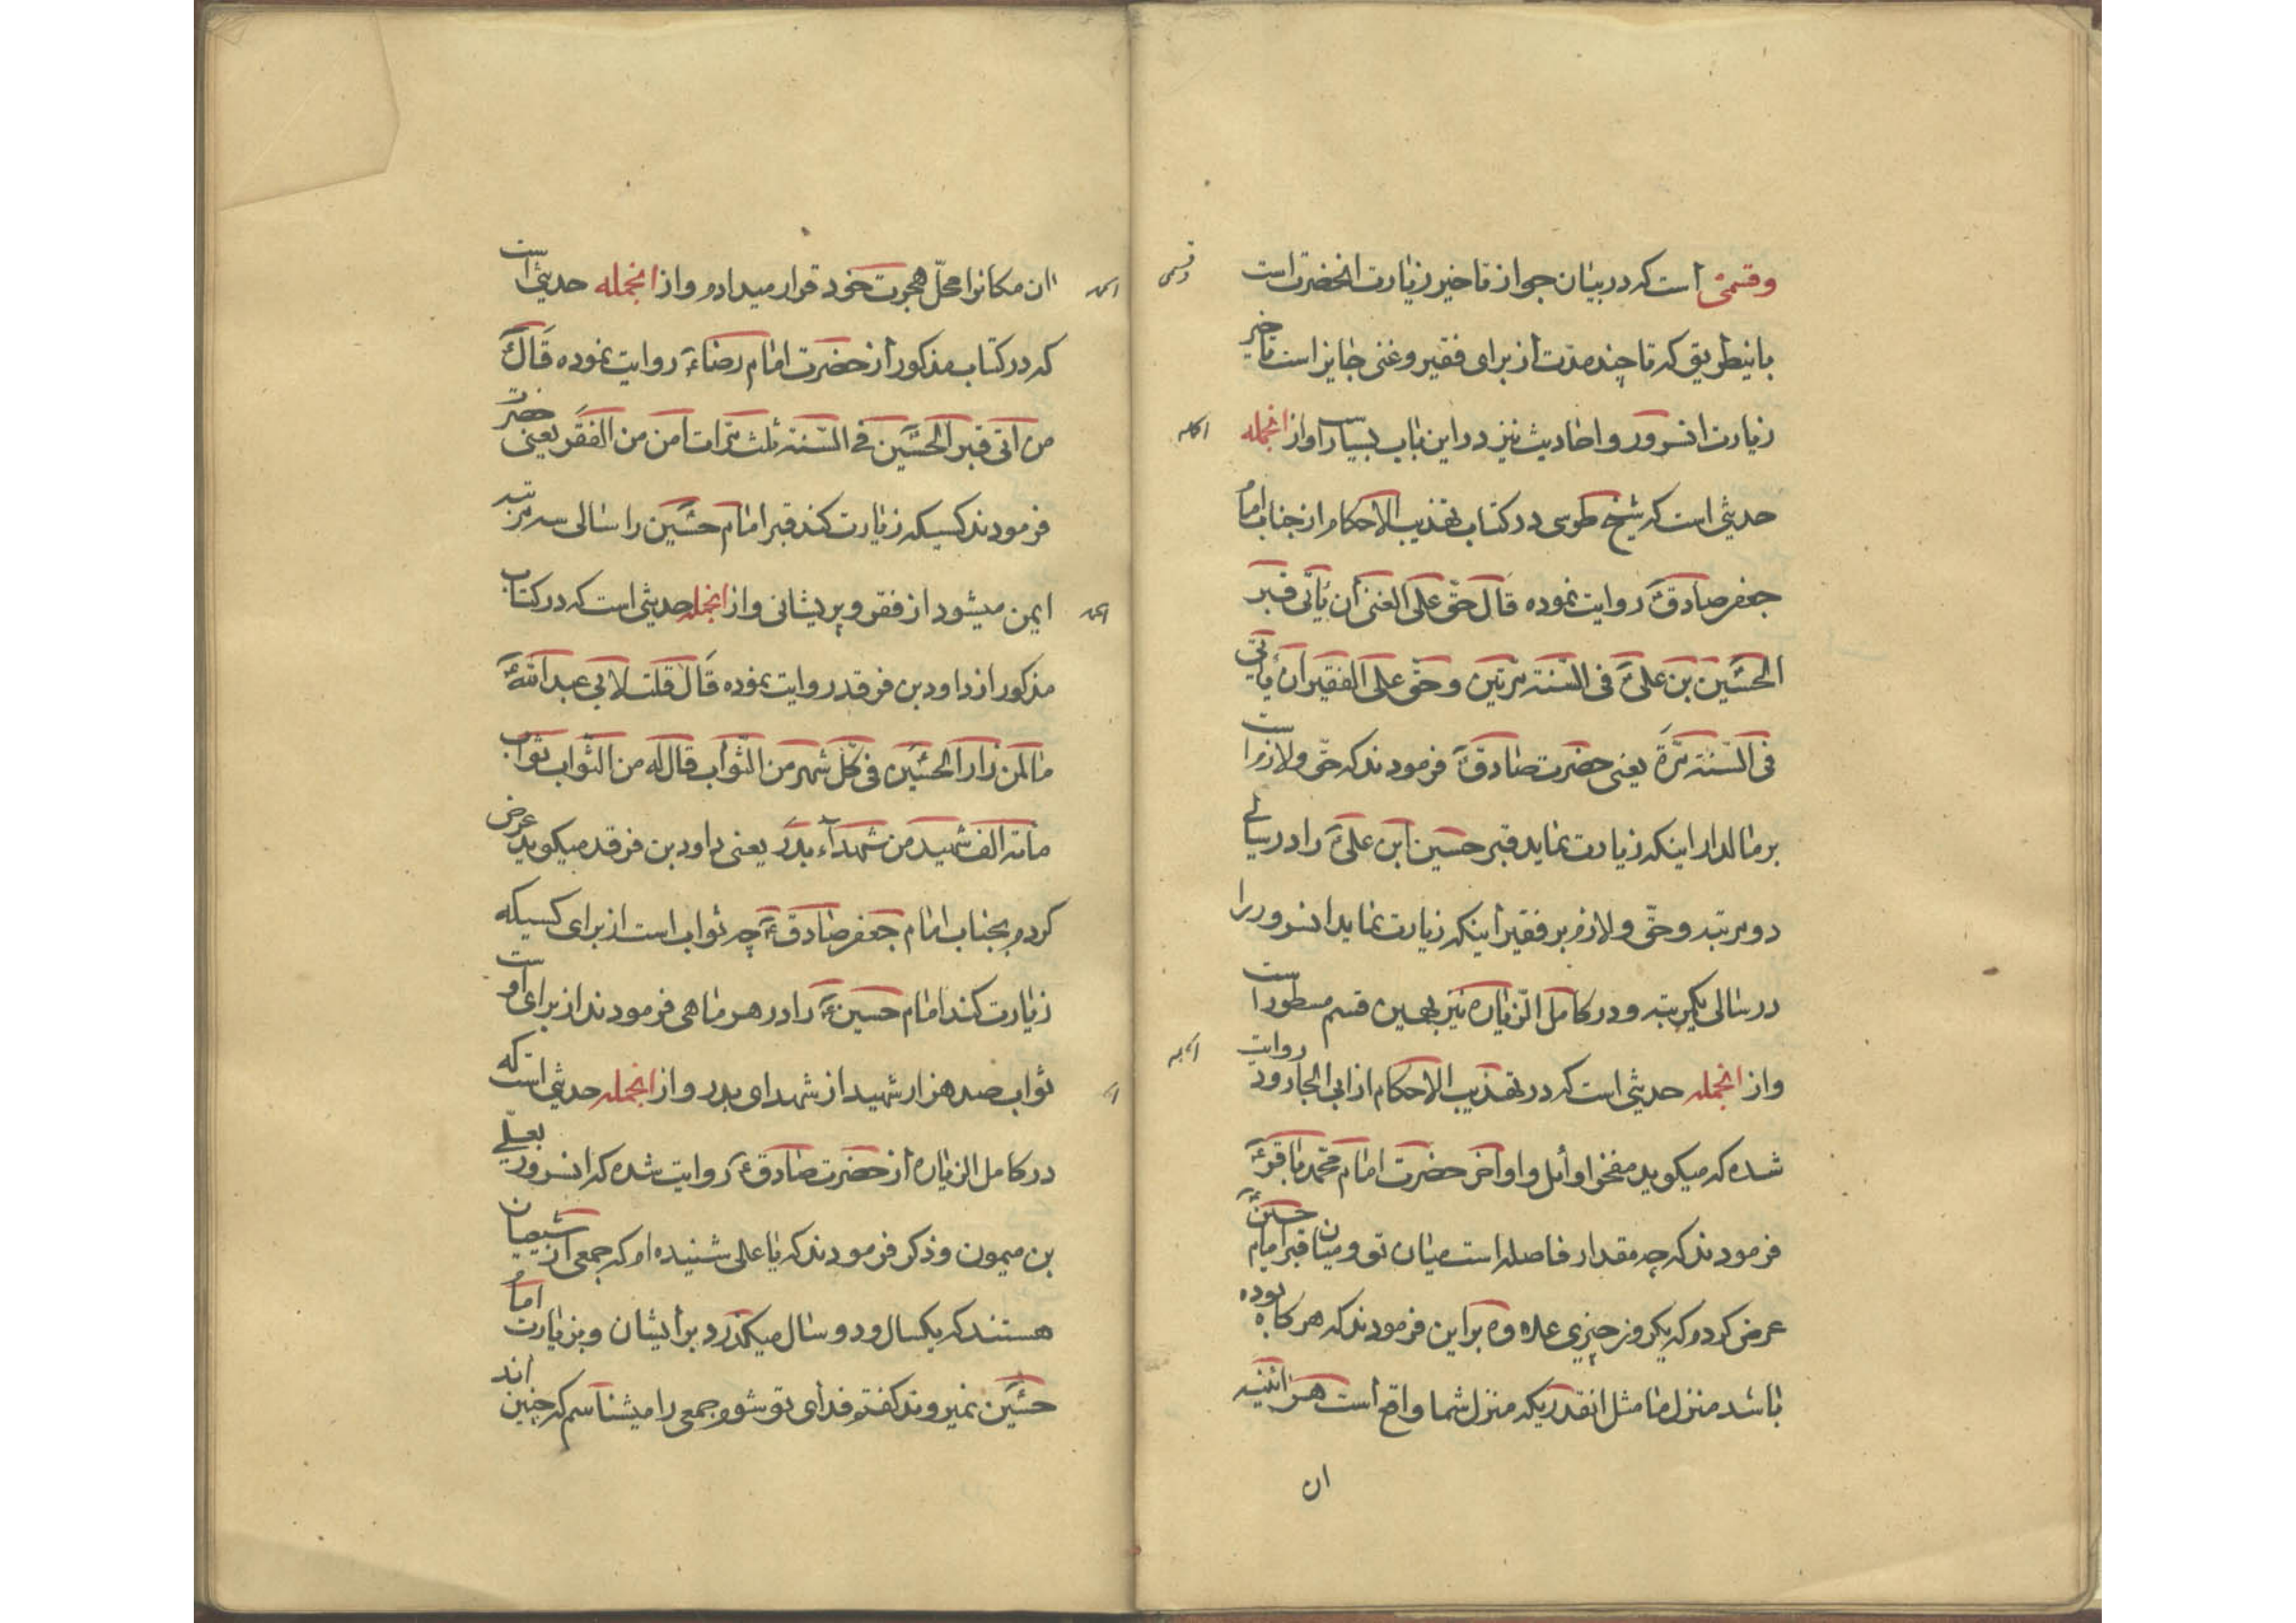 وقسمی است که در بیان جواز تاخیر زیارت انحضرت است
باینطریق که تا چند مدت از برای فقیر و غنی جایز است تاخیر
زیارت انسرور و احادیث نیز در این باب بسیار است و از انجمله
حدیثی است که شیخ طوسی در کتاب تهذیب الاحکام از جناب امام
جعفر صادقؑ روایت نموده قال حقّ علی الغنیّ أن یأتی قبر
الحسین بن علیؑ فی السّنة مرّتین و حقّ علی الفقیر أن یأتی
فی السّنة مرّة یعنی حضرت صادقؑ فرمودند که حقّ و لازم است
بر مالدار اینکه زیارت نماید قبر حسین ابن علیؑ را در سالی
دو مرتبه و حقّ و لازم بر فقیر اینکه زیارت نماید انسرور را
در سالی یکمرتبه و در کامل الزّیاره نیز بهمین قسم مسطور است
و از انجمله حدیثی است که در تهذیب الاحکام از ابی الجارود روایت
شده که میگوید حضرت امام محمّد باقرؑ
فرمودند که چه مقدار فاصله است میان تو و میان قبر امام حسینؑ
عرض کردم که یکروز چیزی علاوه بر این فرمودند که هر گاه بوده
باشد منزل ما مثل انقدریکه منزل شما واقع است هر اینه
ان
وقسمی
انجمله
انجمله
ان مکانرا محلّ هجرت خود قرار میدادم و از انجمله حدیثی است
که در کتاب مذکور از حضرت امام رضاءؑ روایت نموده قالؑ
من أتی قبر الحسین فی السّنة ثلث مرّات أمن من الفقر یعنی حضرت
فرمودند کسیکه زیارت کند قبر امام حسین را سالی سه مرتبه
ایمن میشود از فقر و پریشانی و از انجمله حدیثی است که در کتاب
مذکور از داود بن فرقد روایت نموده قال قلت لابی عبد اللهؑ
ما لمن زار الحسین فی کلّ شهر من الثّواب قال له من الثّواب ثواب
مائة الف شهید من شهدآء بدر یعنی داود بن فرقد میگوید عرض
کردم بجناب امام جعفر صادقؑ چه ثواب است از برای کسیکه
زیارت کند امام حسینؑ را در هر ماهی فرمودند از برای او است
ثواب صد هزار شهید از شهدای بدر و از انجمله حدیثی است که
در کامل الزیاره از حضرت صادقؑ روایت شده که انسرور بعلی
بن میمون وذکر فرمودند که یا علی شنیده ام که جمعی از شیعیان
هستند که یکسال و دو سال میگذرد بر ایشان و بزیارت امام
حسین نمیروند گفتم فدای تو شوم جمعی را میشناسم که چنین اند